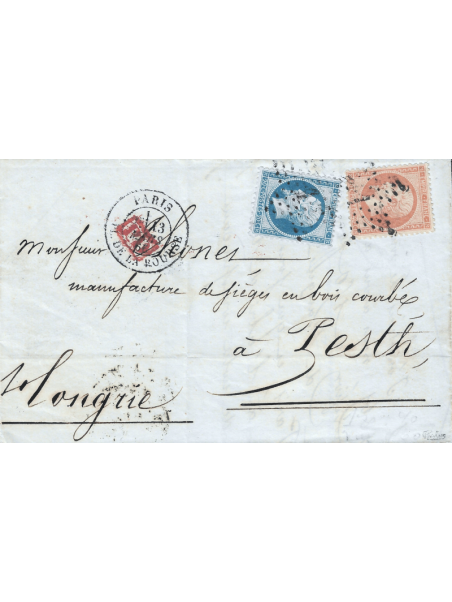 PARIS
13
PL. DE LA BOURSE
Monsieur
manufacture de sièges en bois courbés
à Pesth,
Hongrie